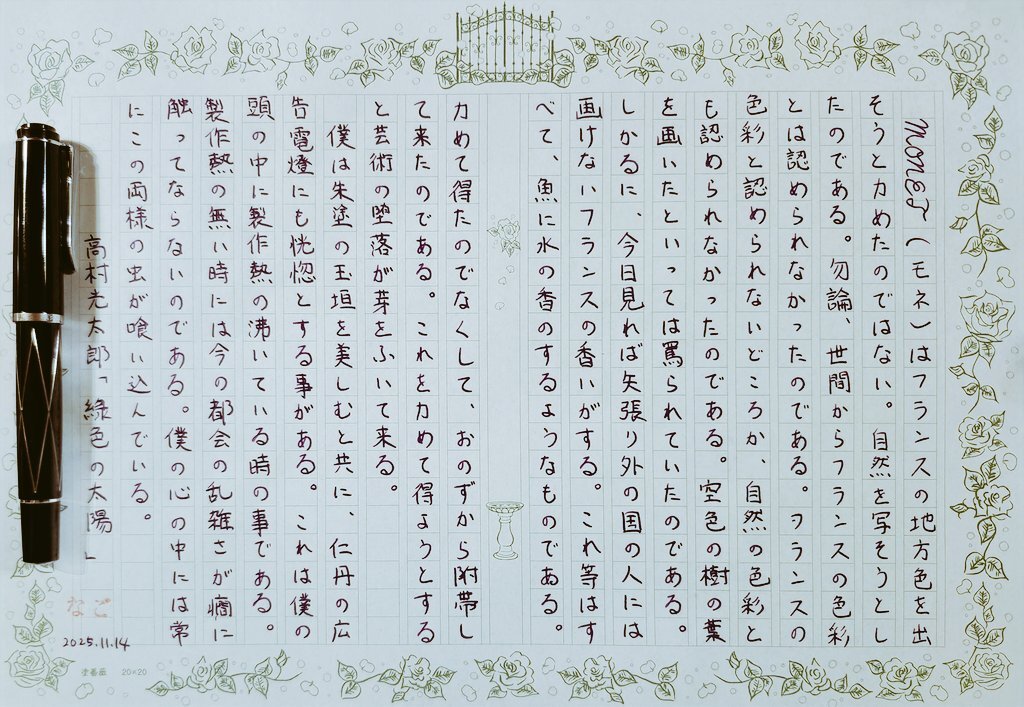 MONET(モネ)はフランスの地方色を出
そうと力めたのではない。自然を写そうとし
たのである。勿論、世間からフランスの色彩
とは認められなかったのである。フランスの
色彩と認められないどころか、自然の色彩と
も認められなかったのである。空色の樹の葉
を画いたといっては罵られていたのである。
しかるに、今日見れば矢張り外の国の人には
画けないフランスの香いがする。これ等はす
べて、魚に水の香のするようなものである。
力めて得たのでなくして、おのずから附帯し
て来たのである。これを力めて得ようとする
と芸術の堕落が芽をふいて来る。
僕は朱塗の玉垣を美しむと共に、仁丹の広
告電燈にも恍惚とする事がある。これは僕の
頭の中に製作熱の沸いている時の事である。
製作熱の無い時には今の都会の乱雑さが癇に
触ってならないのである。僕の心の中には常
にこの両様の虫が喰い込んでいる。
高村光太郎「緑色の太陽」
なご
2025.11.14
20×20